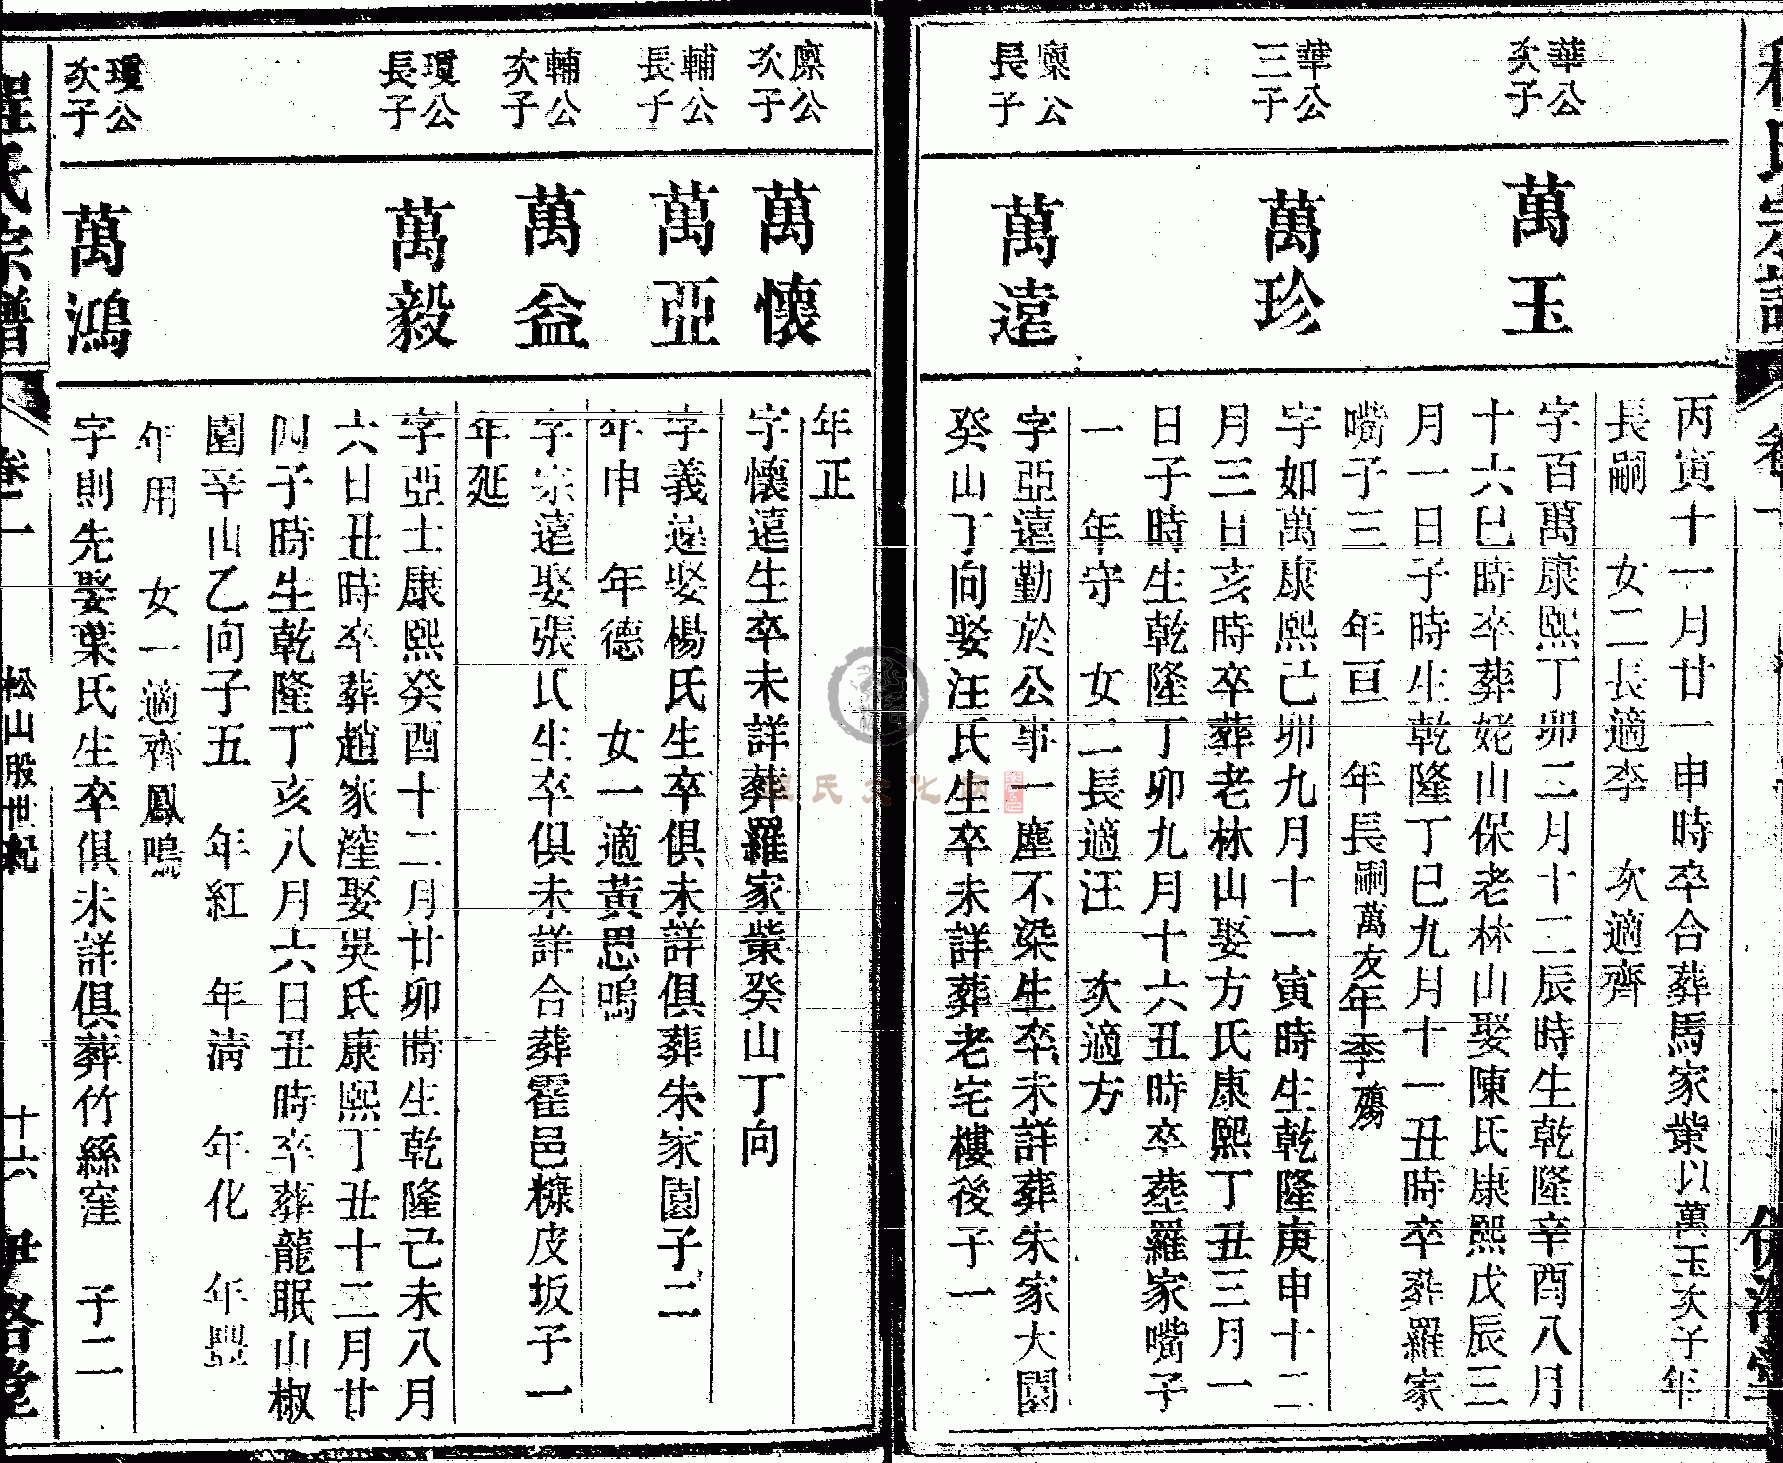 丙寅十一月廿一申時卒合葬馬家柴以萬玉次子年
長嗣 女二長適李 次適齊
華公
次子
萬玉
字百萬康熙丁卯二月十二辰時生乾隆辛酉八月
十六巳時卒葬姥山保老林山娶陳氏康熙戊辰三
月一日子時生乾隆丁巳九月十一丑時卒葬羅家
嘴子三 年亘 年長嗣萬友年季殤
華公
三子
萬珍
字如萬康熙己卯九月十一寅時生乾隆庚申十二
月三日亥時卒葬老林山娶方氏康熙丁丑三月一
日子時生乾隆丁卯九月十六丑時卒葬羅家嘴子
一 年守 女二長適汪 次適方
廩公
長子
萬遠
字亞遠勤於公事一塵不染生卒未詳葬朱家大園
癸山丁向娶汪氏生卒未詳葬老宅樓後子一
年正
廩公
次子
萬懷
字懷遠生卒未詳葬羅家柴癸山丁向
輔公
長子
萬亞
字義遠娶楊氏生卒俱未詳俱葬朱家園子二
年申 年德 女一適黃思鳴
輔公
次子
萬益
字宗遠娶張氏生卒俱未詳合葬霍邑糠皮坂子一
年延
瓊公
長子
萬毅
字亞士康熙癸酉十二月廿卯時生乾隆己未八月
六日丑時卒葬趙家漥娶吳氏康熙丁丑十二月廿
四子時生乾隆丁亥八月六日丑時卒葬龍眠山椒
園辛山乙向子五 年紅 年清 年化 年豐
年用 女一適齊鳳鳴
瓊公
次子
萬鴻
字則先娶葉氏生卒俱未詳俱葬竹絲窪 子二
程氏宗譜
卷二
松山股世紀
十六
伊洛堂